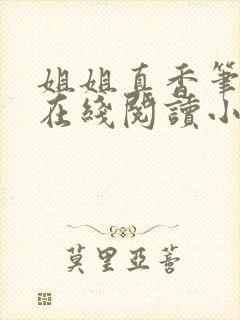 姐姐真香筆
在綫閱讀小
莫里亞蒂